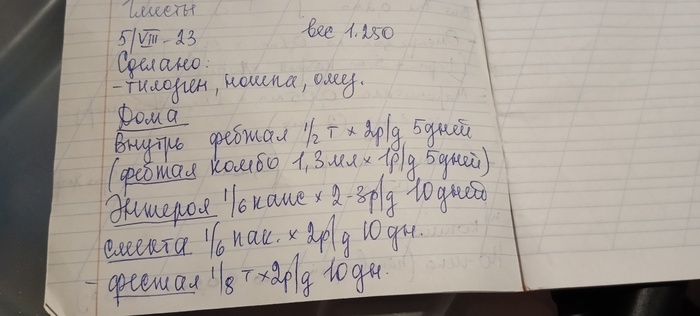 глисты
5/VIII-23 вес 1.250
Сделано:
-тилозен, ношпа, омез.
Дома
внутрь фебтал 1/2 т × 2р/д 5дней
(фебтал комбо 1,3мл × 1р/д 5дней)
Энтерол 1/6 капс × 2-3р/д 10дней
смекта 1/6 пак. × 2р/д 10дн.
- фестал 1/8 т × 2р/д 10дн.